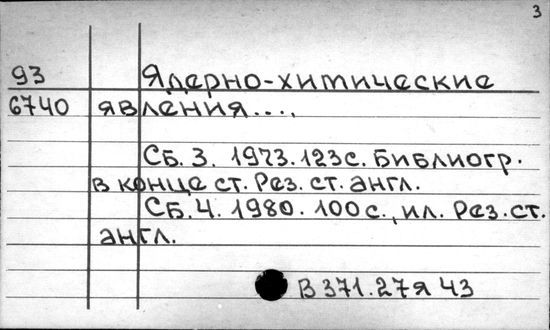 3
93 Ядерно-химические
6740 явления....
Сб. 3. 1973. 123с. Библиогр.
в конце ст. Рез. ст. англ.
Сб. 4. 1980. 100с., ил. Рез. ст.
англ.
В 371.27я 43